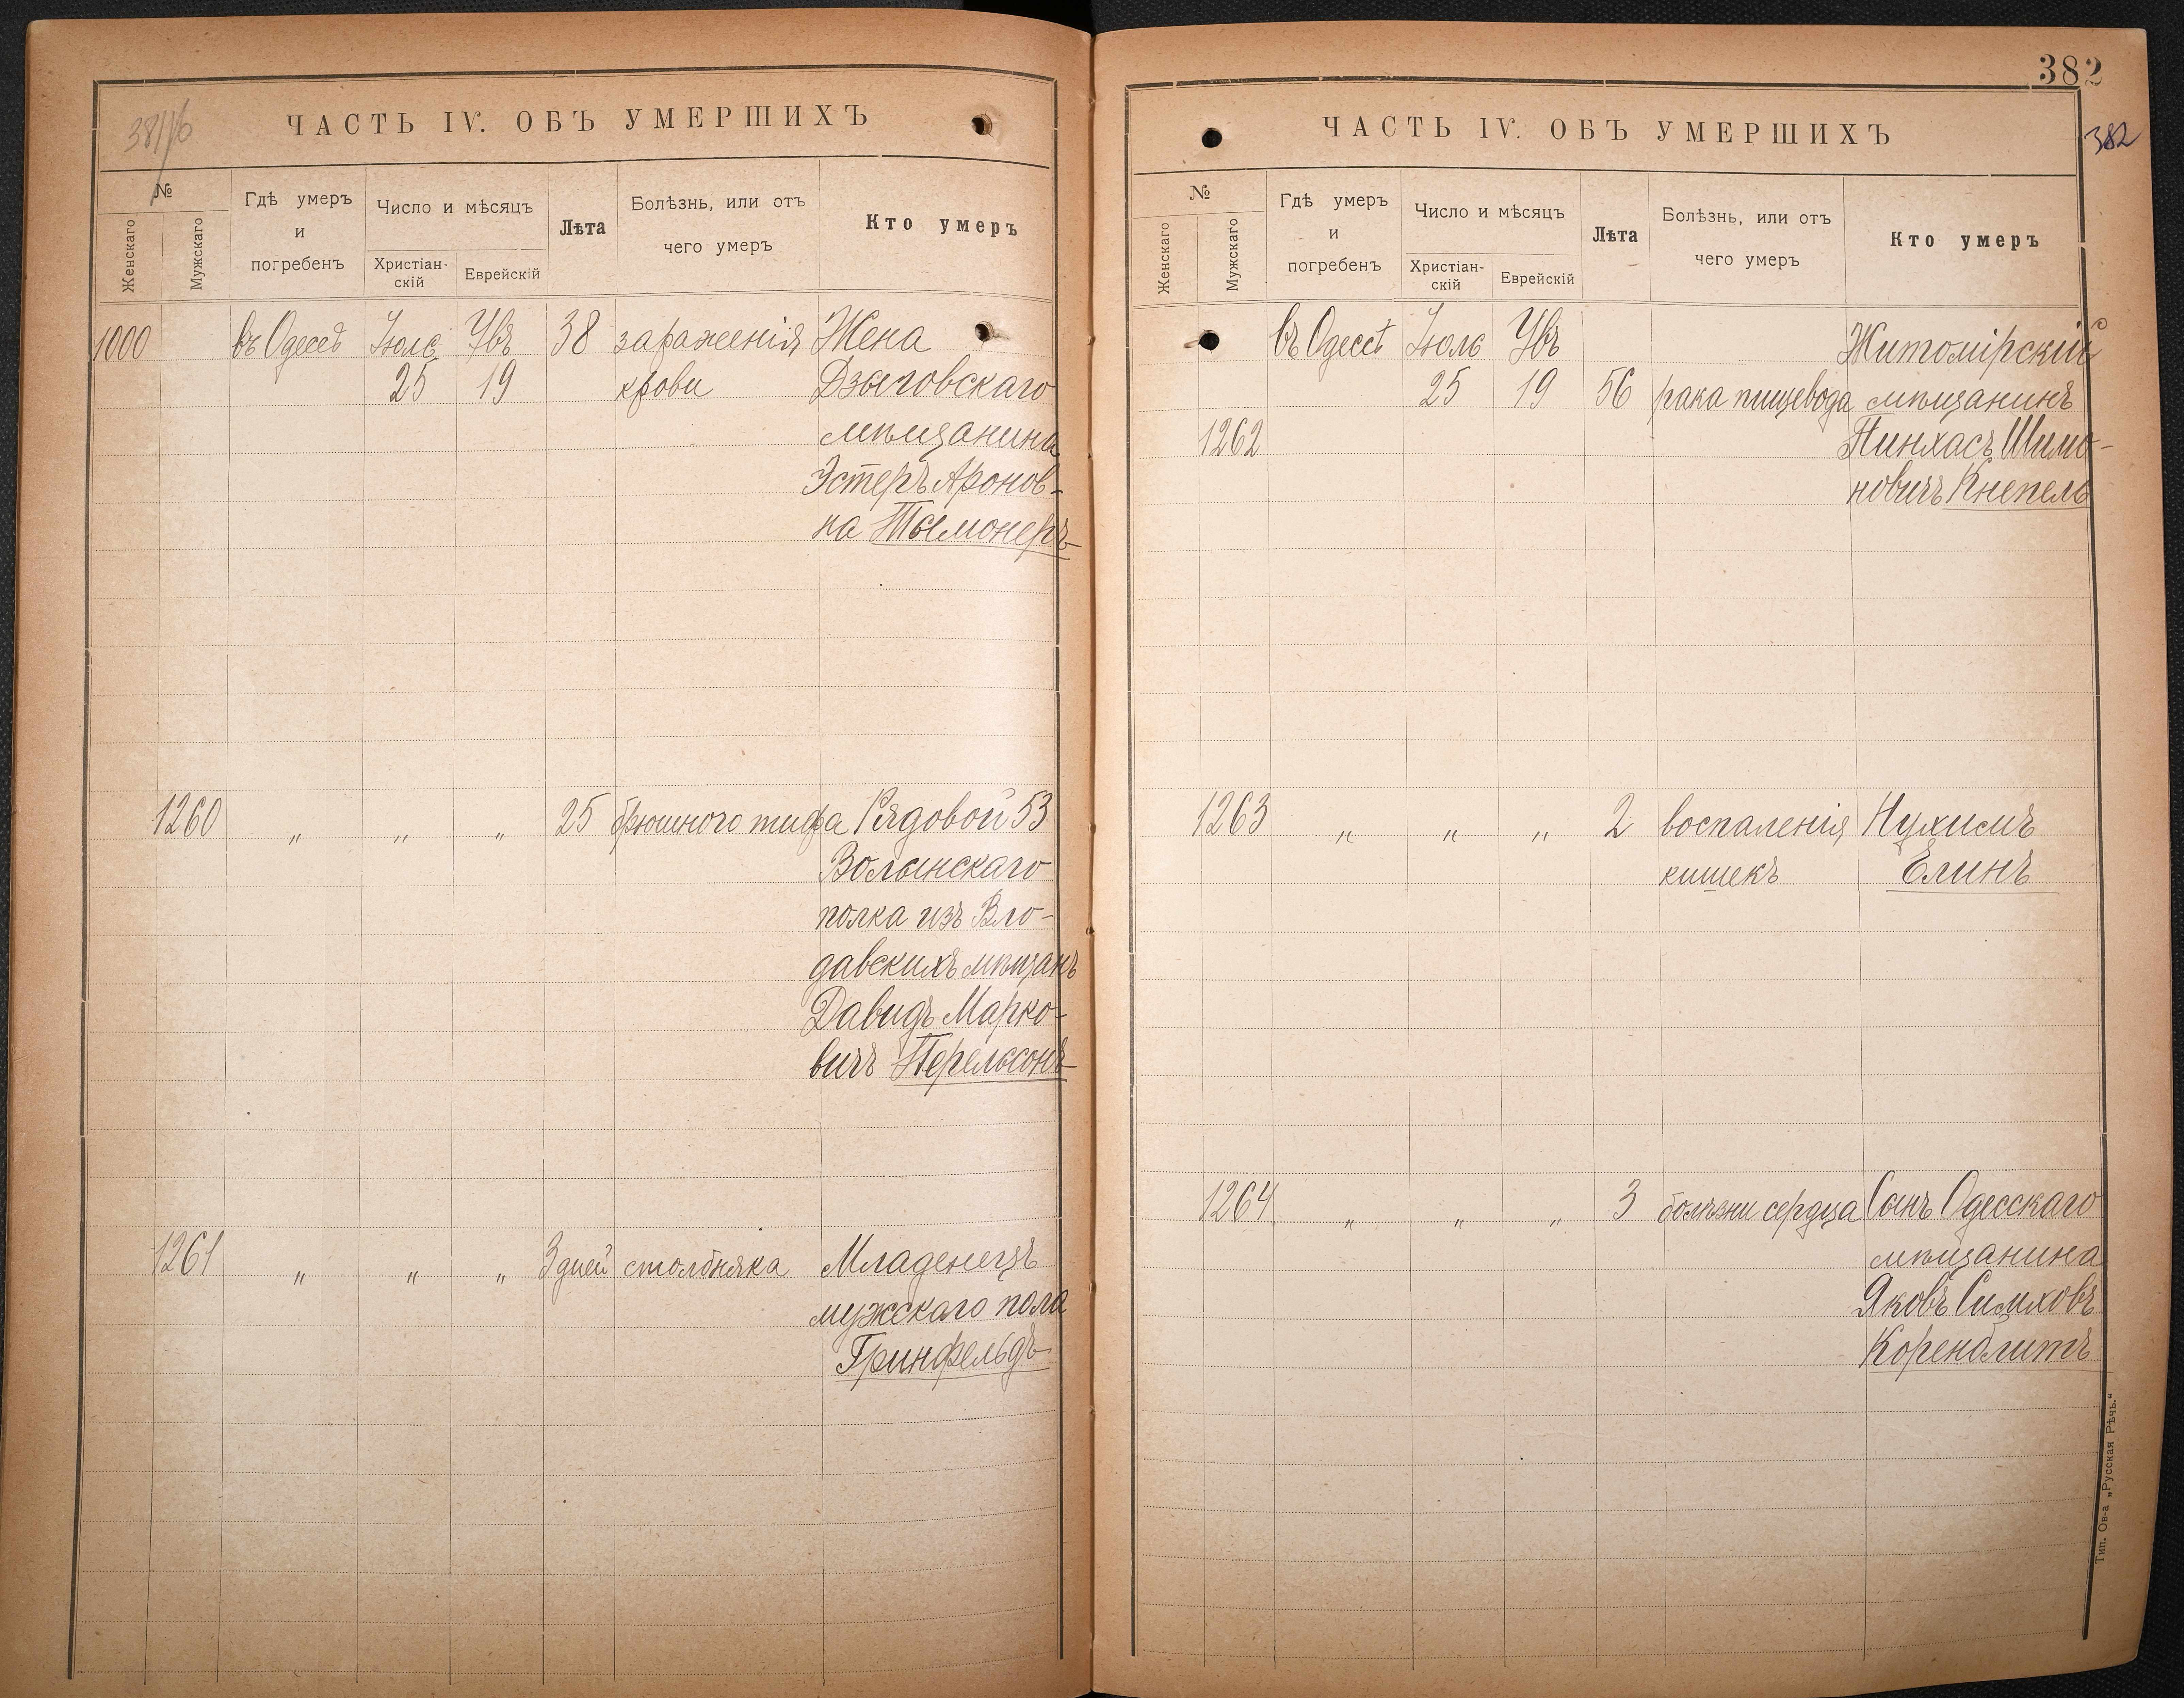 381/16
ЧАСТЬ IV. ОБЪ УМЕРШИХЪ
№
Женскаго
Мужскаго
Гдѣ умеръ
и
погребенъ
Число и мѣсяцъ
Христіан-
скій
Еврейскій
Лѣта
Болѣзнь, или отъ
чего умеръ
Кто умеръ
1000 въ Одессѣ Іюль 38 зараженія Жена
25 19 крови Дзыговскаго
мѣщанина
Эстеръ Аронов-
на Тымонеръ
1260 „ „ „ 25 брюшного тифа Рядовой 53
Волынскаго
полка изъ Вло-
давскихъ мѣщанъ
Давидъ Марко-
вичъ Перельсонъ
1261 „ „ „ 3 дней столбняка Младенецъ
мужского пола
Гринфельдъ
382
382
ЧАСТЬ IV. ОБЪ УМЕРШИХЪ
№
Женскаго
Мужскаго
Гдѣ умеръ
и
погребенъ
Число и мѣсяцъ
Христіан-
скій
Еврейскій
Лѣта
Болѣзнь, или отъ
чего умеръ
Кто умеръ
въ Одессѣ Іюль Житомірскій
25 19 56 рака пищевода мѣщанинъ
1262 Пинхасъ Шимо-
новичъ Кнепель
1263 „ „ „ 2 воспаленія Нухимъ
кишекъ Елинъ
1264 „ „ „ 3 болѣзни сердца Сынъ Одесскаго
мѣщанина
Яковъ Симховъ
Коренблитъ
Тип. Ов-а „Русская Рѣчь.“